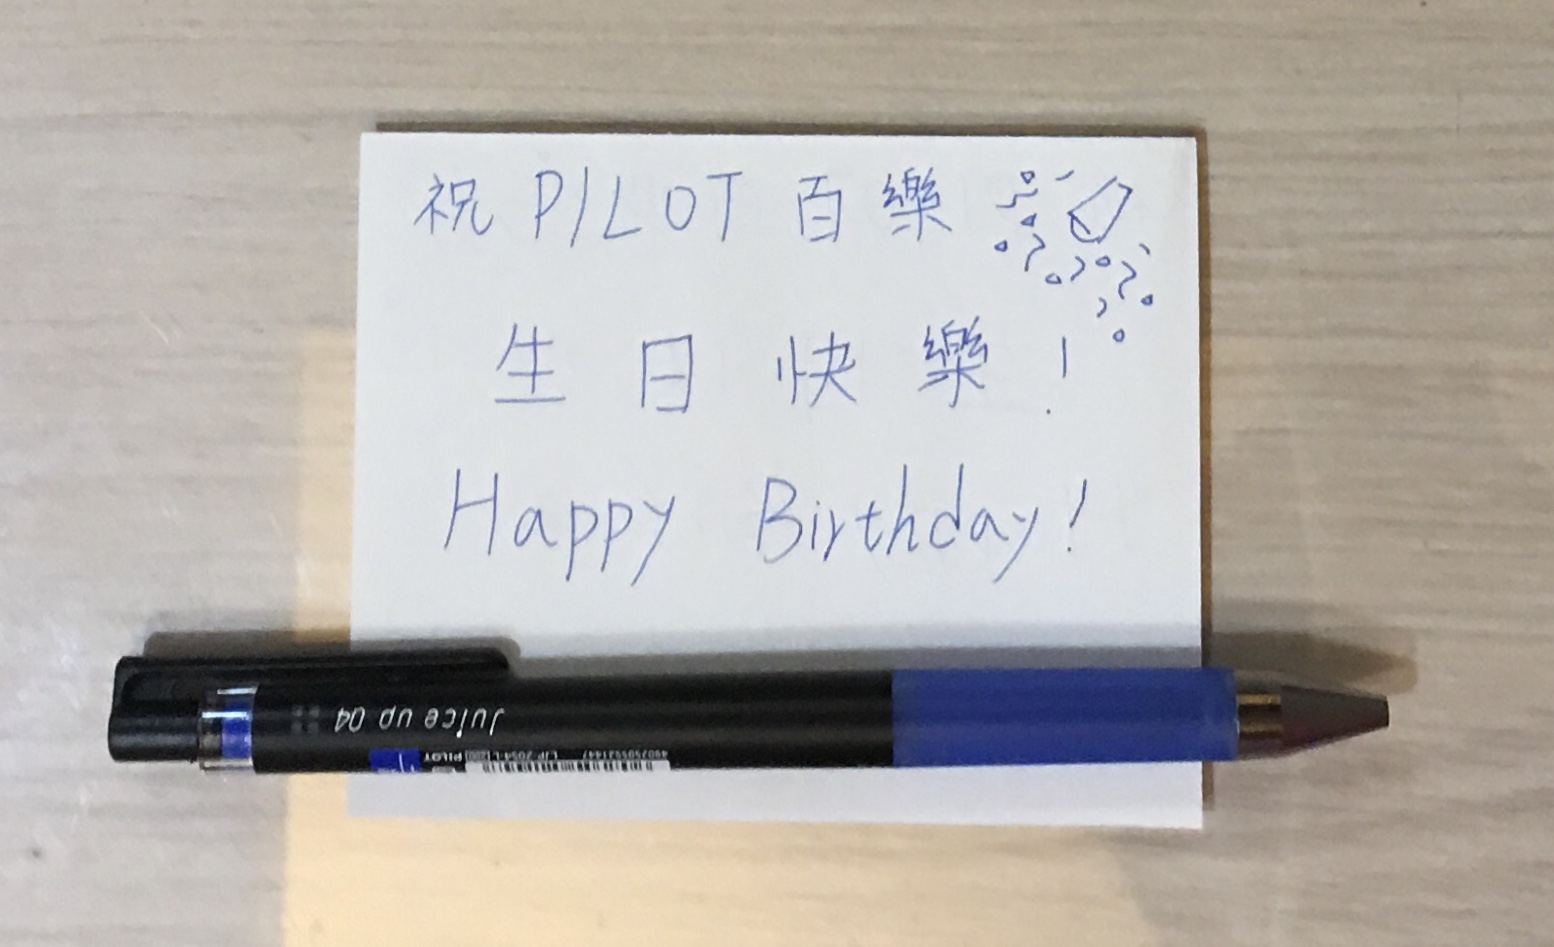 祝 PILOT 百樂
生日快樂！
Happy Birthday!
Juice up 04
PILOT